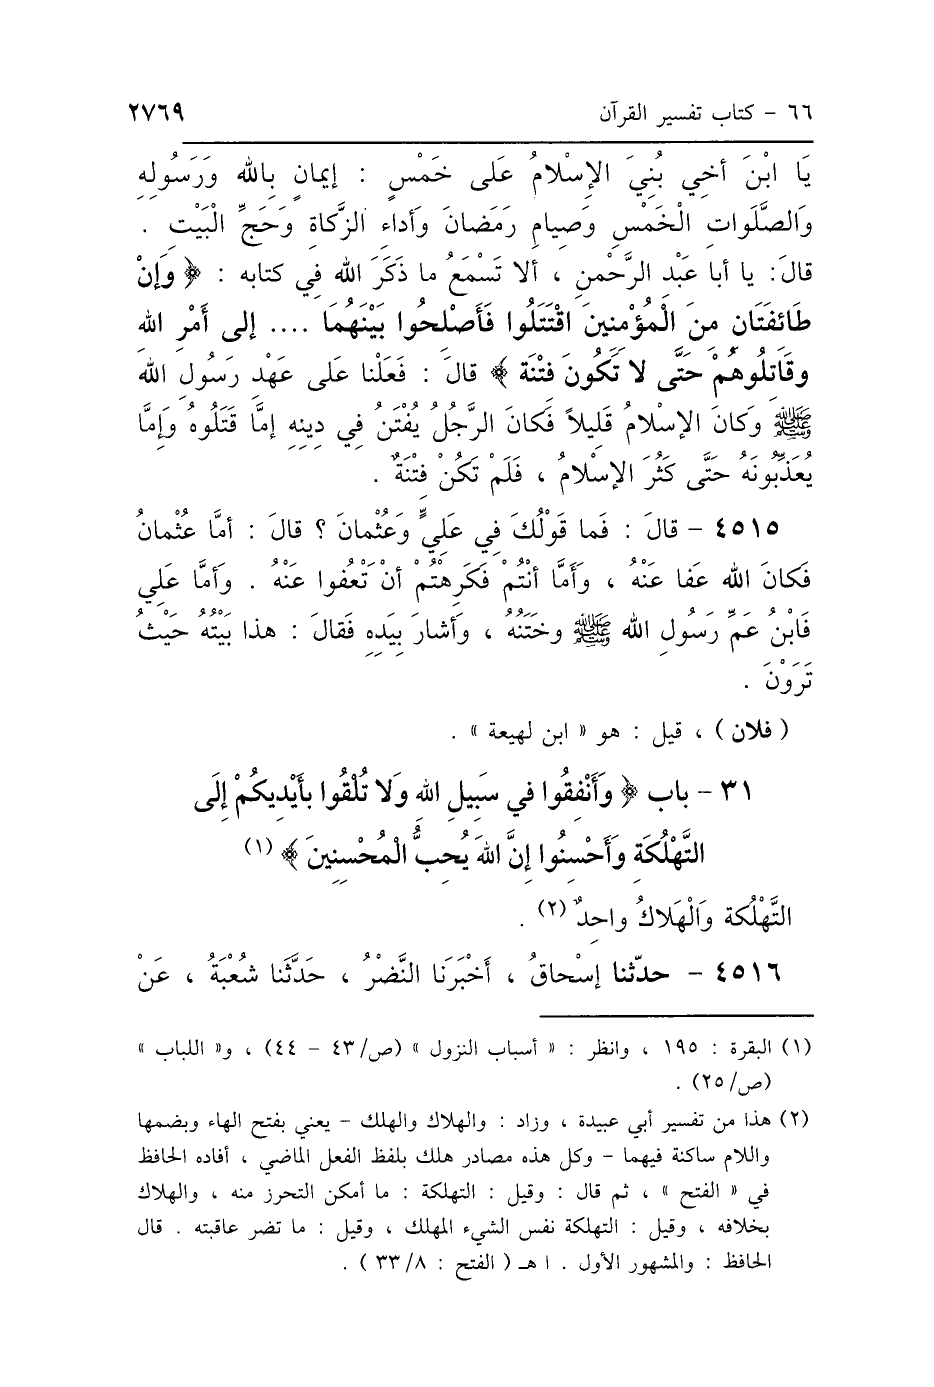 ٦٦ - كتاب تفسير القرآن ٢٧٦٩
يَا ابْنَ أخِي بُنِيَ الإسْلامُ عَلى خَمْسٍ : إيمَانٍ بِالله وَرَسُولِهِ
وَالصَّلَوَاتِ الْخَمْسِ وَصِيامِ رَمَضَانَ وَأداءِ الزَّكاةِ وَحَجِّ الْبَيْتِ .
قالَ: يا أبا عَبْدِ الرَّحْمنِ ، ألا تَسْمَعُ ما ذَكَرَ الله فِي كتابه : ﴿ وَإنْ
طَائفَتَانِ مِنَ الْمُؤْمِنينَ اقْتَتَلُوا فَأَصْلِحُوا بَيْنَهُمَا .... إلى أَمْرِ الله
وقَاتِلُوهُمْ حَتَّى لا تَكُونَ فتْنَة ﴾ قالَ : فَعَلْنا عَلى عَهْدِ رَسُولِ الله
ﷺ وَكانَ الإسْلامُ قَلِيلاً فَكانَ الرَّجُلُ يُفْتَنُ فِي دِينِهِ إمَّا قَتَلُوهُ وَإمَّا
يُعَذِّبُونَهُ حَتَّى كَثُرَ الإسْلامُ ، فَلَمْ تَكُنْ فِتْنَةٌ .
٤٥١٥ - قالَ : فَما قَوْلُكَ فِي عَلِيٍّ وَعُثْمانَ ؟ قالَ : أمَّا عُثْمانُ
فَكانَ الله عَفا عَنْهُ ، وَأَمَّا أنْتُمْ فَكَرِهْتُمْ أنْ تَعْفوا عَنْهُ . وَأمَّا عَلِي
فَابْنُ عَمِّ رَسُولِ الله ﷺ وخَتَنُهُ ، وَأشارَ بِيَدِهِ فَقالَ : هذا بَيْتُهُ حَيْثُ
تَرَوْنَ .
( فلان ) ، قيل : هو « ابن لهيعة » .
٣١ - باب ﴿ وَأَنْفِقُوا في سَبَيلِ الله وَلا تُلْقُوا بأَيْدِيكُمْ إلَى
التَّهْلُكَةِ وَأَحْسِنُوا إنَّ اللهَ يُحِبُّ الْمُحْسِنِينَ ﴾ (١)
التَّهْلُكة وَالْهَلاكُ واحِدٌ (٢) .
٤٥١٦ - حدّثنا إسْحاقُ ، أَخْبَرَنا النَّضْرُ ، حَدَّثَنا شُعْبَةُ ، عَنْ
(١) البقرة : ١٩٥ ، وانظر : « أسباب النزول » (ص/ ٤٣ - ٤٤) ، و« اللباب »
(ص/ ٢٥) .
(٢) هذا من تفسير أبي عبيدة ، وزاد : والهلاك والهلك - يعني بفتح الهاء وبضمها
واللام ساكنة فيهما - وكل هذه مصادر هلك بلفظ الفعل الماضي ، أفاده الحافظ
في « الفتح » ، ثم قال : وقيل : التهلكة : ما أمكن التحرز منه ، والهلاك
بخلافه ، وقيل : التهلكة نفس الشيء المهلك ، وقيل : ما تضر عاقبته . قال
الحافظ : والمشهور الأول . ا هـ ( الفتح : ٨/ ٣٣ ) .